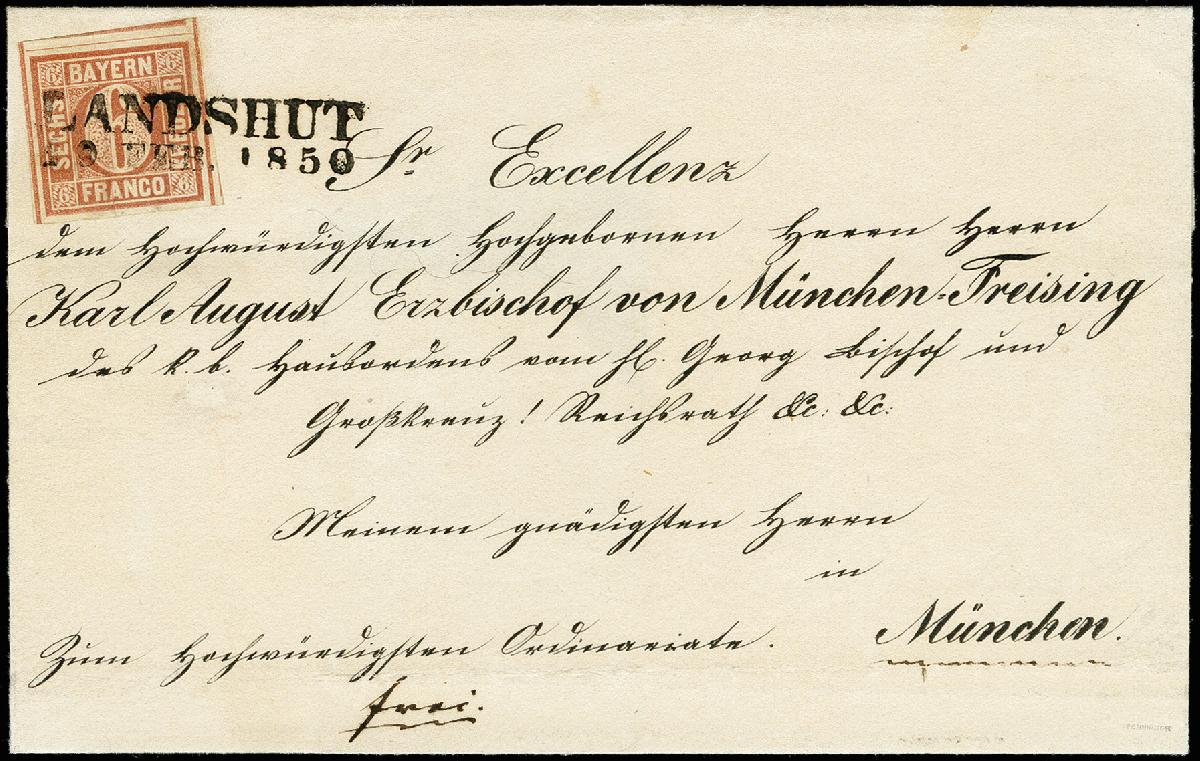 BAYERN
SECHS
6
KREUZER
FRANCO
LANDSHUT
FEB. 1850
Sr Excellenz
dem Hochwürdigsten Hochgebornen Herrn Herrn
Karl August Erzbischof von München-Freising
des k. b. Hausordens vom hl. Georg Bischof und
Großkreuz! Reichsrath &c: &c:
Meinem gnädigsten Herrn
in
München.
Zum Hochwürdigsten Ordinariate.
frei.